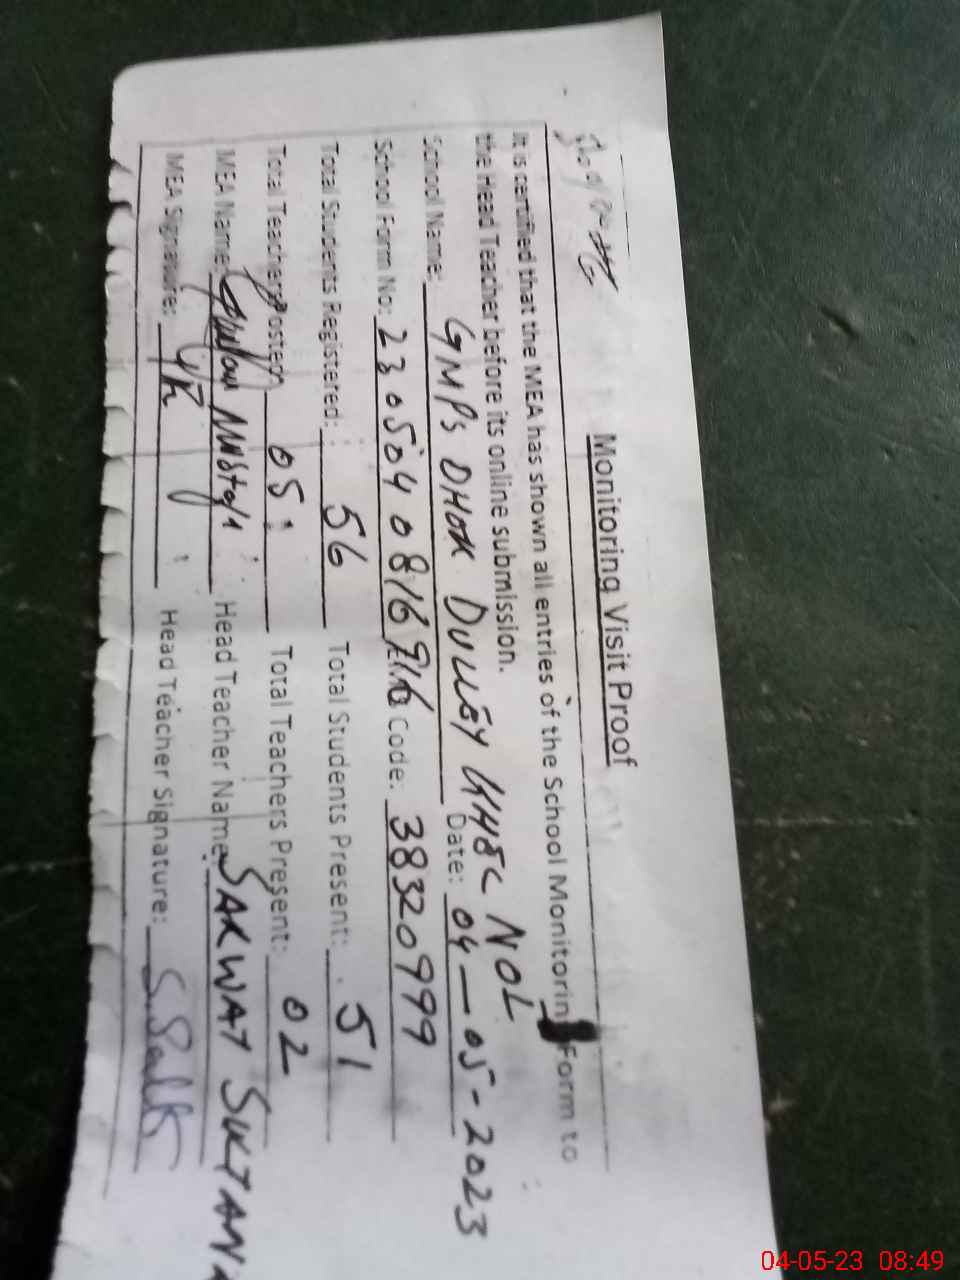 Monitoring Visit Proof
It is certified that the MEA has shown all entries of the School Monitoring Form to
the Head Teacher before its online submission.
School Name: GMPS DHOK DULLEY Date: 04-05-2023
School Form No: 23 0504 0816 916 Code: 38320999
Total Students Registered: 56 Total Students Present: 51
Total Teachers Posted 05 Total Teachers Present: 02
MEA Name: Head Teacher Name: SAKWAT SULTANA
MEA Signature: Head Teacher Signature:
04-05-23 08:49